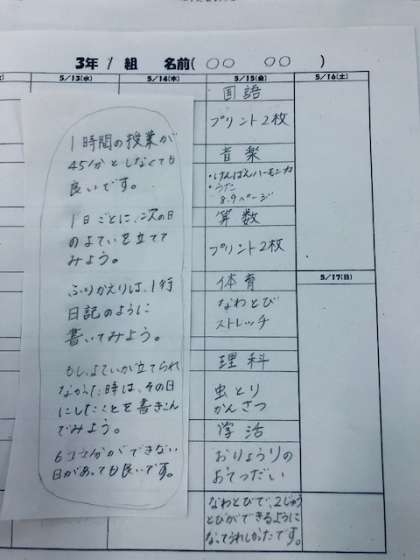 3年 1 組 名前(○○ ○○)
5/13(水) 5/14(木) 5/15(金) 5/16(土)
1時間の授業が
45分としなくても
良いです。
1日ごとに、次の日
のよていを立てて
みよう。
ふりかえりは、1行
日記のように
書いてみよう。
もし、よていが立てられ
なかった時は、その日
にしたことを書きこん
でみよう。
6コマ分ができない
日があっても良いです。
国語
プリント2枚
音楽
・けんばんハーモニカ
・うた
8.9ページ
算数
プリント2枚
体育
なわとび
ストレッチ
理科
虫とり
かんさつ
学活
おりょうりの
おてつだい
なわとびで、2じゅう
とびができるように
なってうれしかったです。
5/17(日)